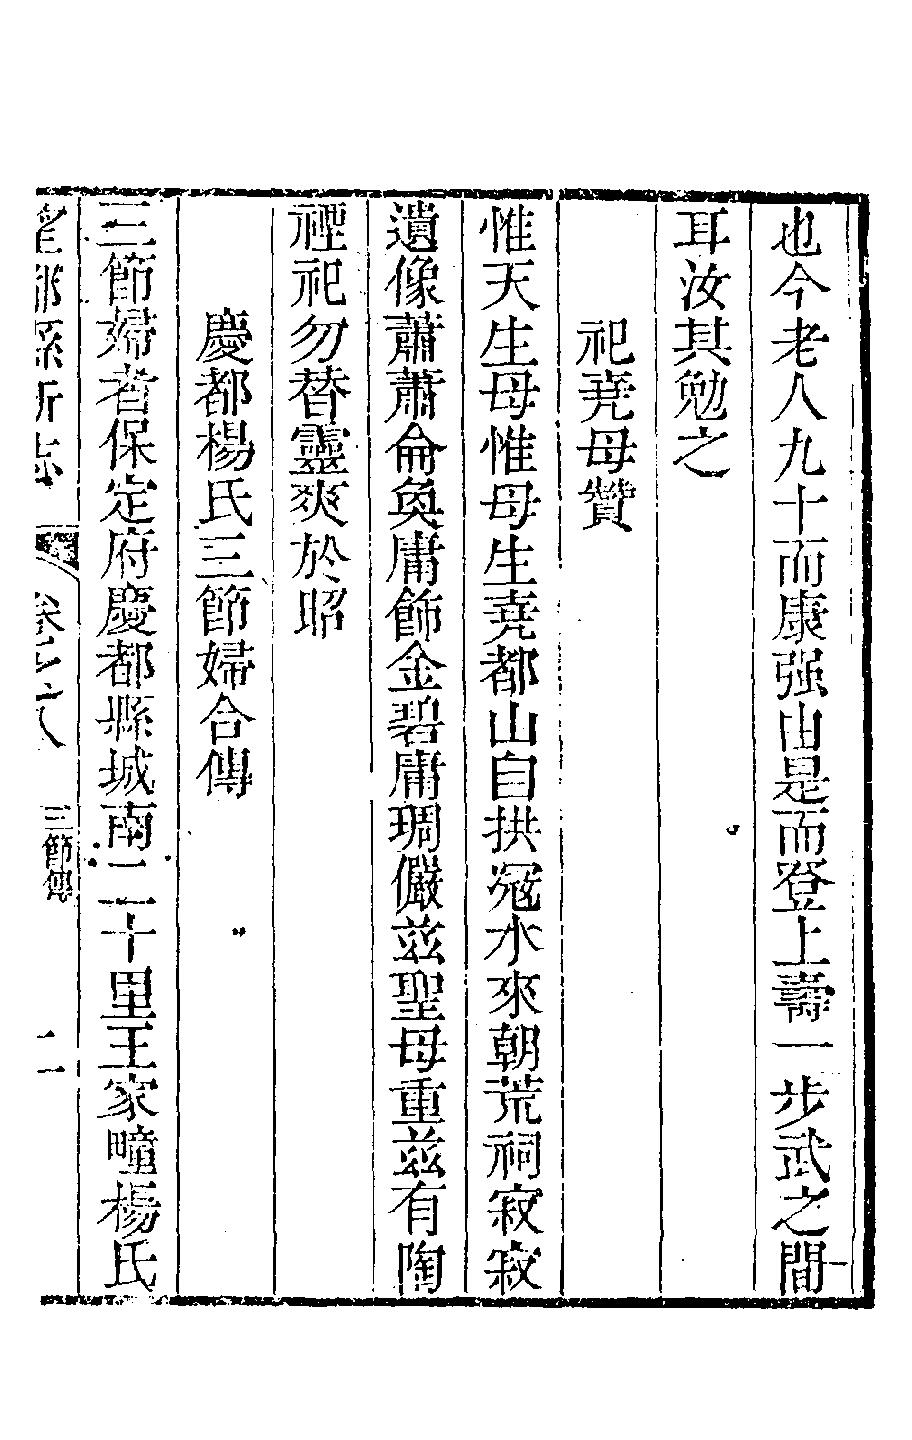 也今老人九十而康强由是而登上壽一步武之間
耳汝其勉之
祀堯母贊
惟天生母惟母生堯都山自拱冦水來朝荒祠寂寂
遺像蕭蕭侖奐庸飾金碧庸琱儼兹聖母重兹有陶
禋祀勿替靈爽於昭
慶都楊氏三節婦合傳
三節婦者保定府慶都縣城南二十里王家疃楊氏
望都縣新志
卷之八
三節傳
二